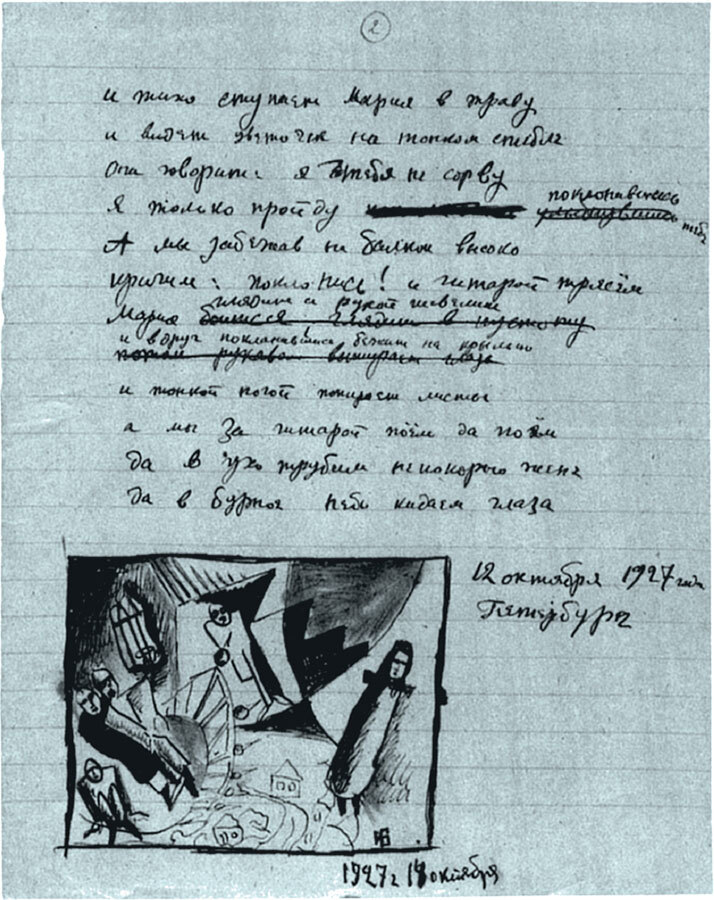 2
и тихо ступает Мария в траву
и видит цветочек на тонком стебле
Она говорит: я тебя не сорву
поклонившись
я только пройду улыбнувшись тебе
А мы забежав на балкон высоко
кричим: поклонись! и гитарой трясём
глядит и рукой шевелит
Мария боится глядит в пустоту
и вдруг поклонившись бежит на крыльцо
потом рукавом вытирает глаза
и тонкой ногой попирает листы
а мы за гитарой поём да поём
да в ухо трубим непокорью жене
да в бурное небо кидаем глаза
12 октября 1927 года
Петербург
1927 г 14 октября